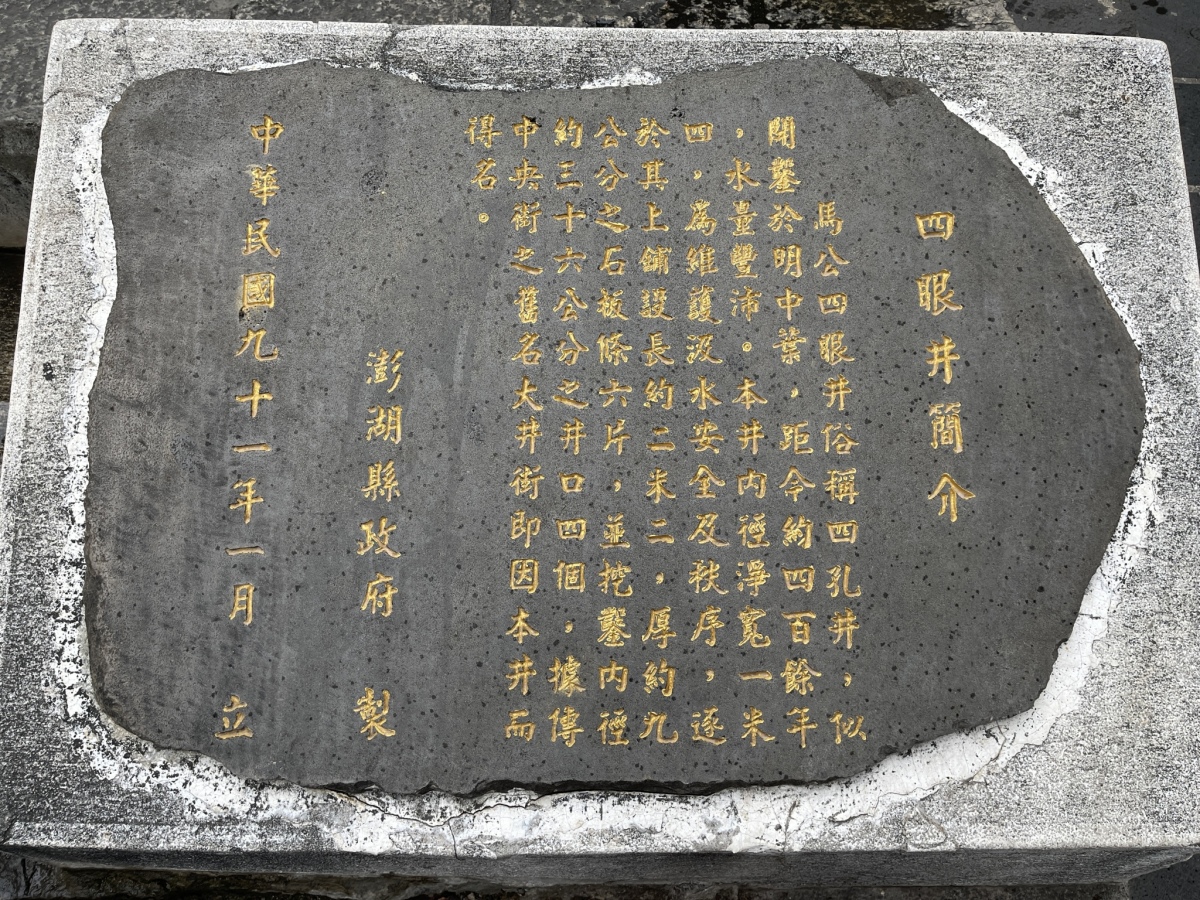 四眼井簡介
馬公四眼井俗稱四孔井，似
開鑿於明中葉，距今約四百餘年
，水量豐沛。本井內徑淨寬一米
四，為維護汲水安全及秩序，逐
於其上鋪設長約二米二，厚約九
公分之石板條六片，並挖鑿內徑
約三十六公分之井口四個，據傳
中央街之舊名大井街即因本井而
得名。
澎湖縣政府　製
中華民國九十一年一月　立